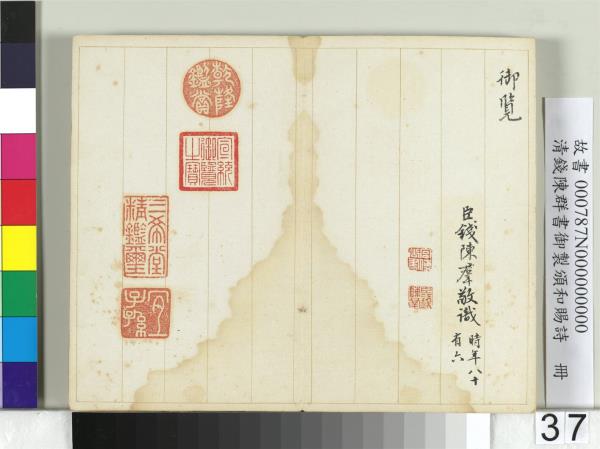 御覽
臣錢陳羣敬識 時年八十
有六
乾隆鑑賞
宣統御覽之寶
三希堂精鑑璽
宜子孫
故書 000787N000000000
清錢陳群書御製頒和賜詩 冊
37